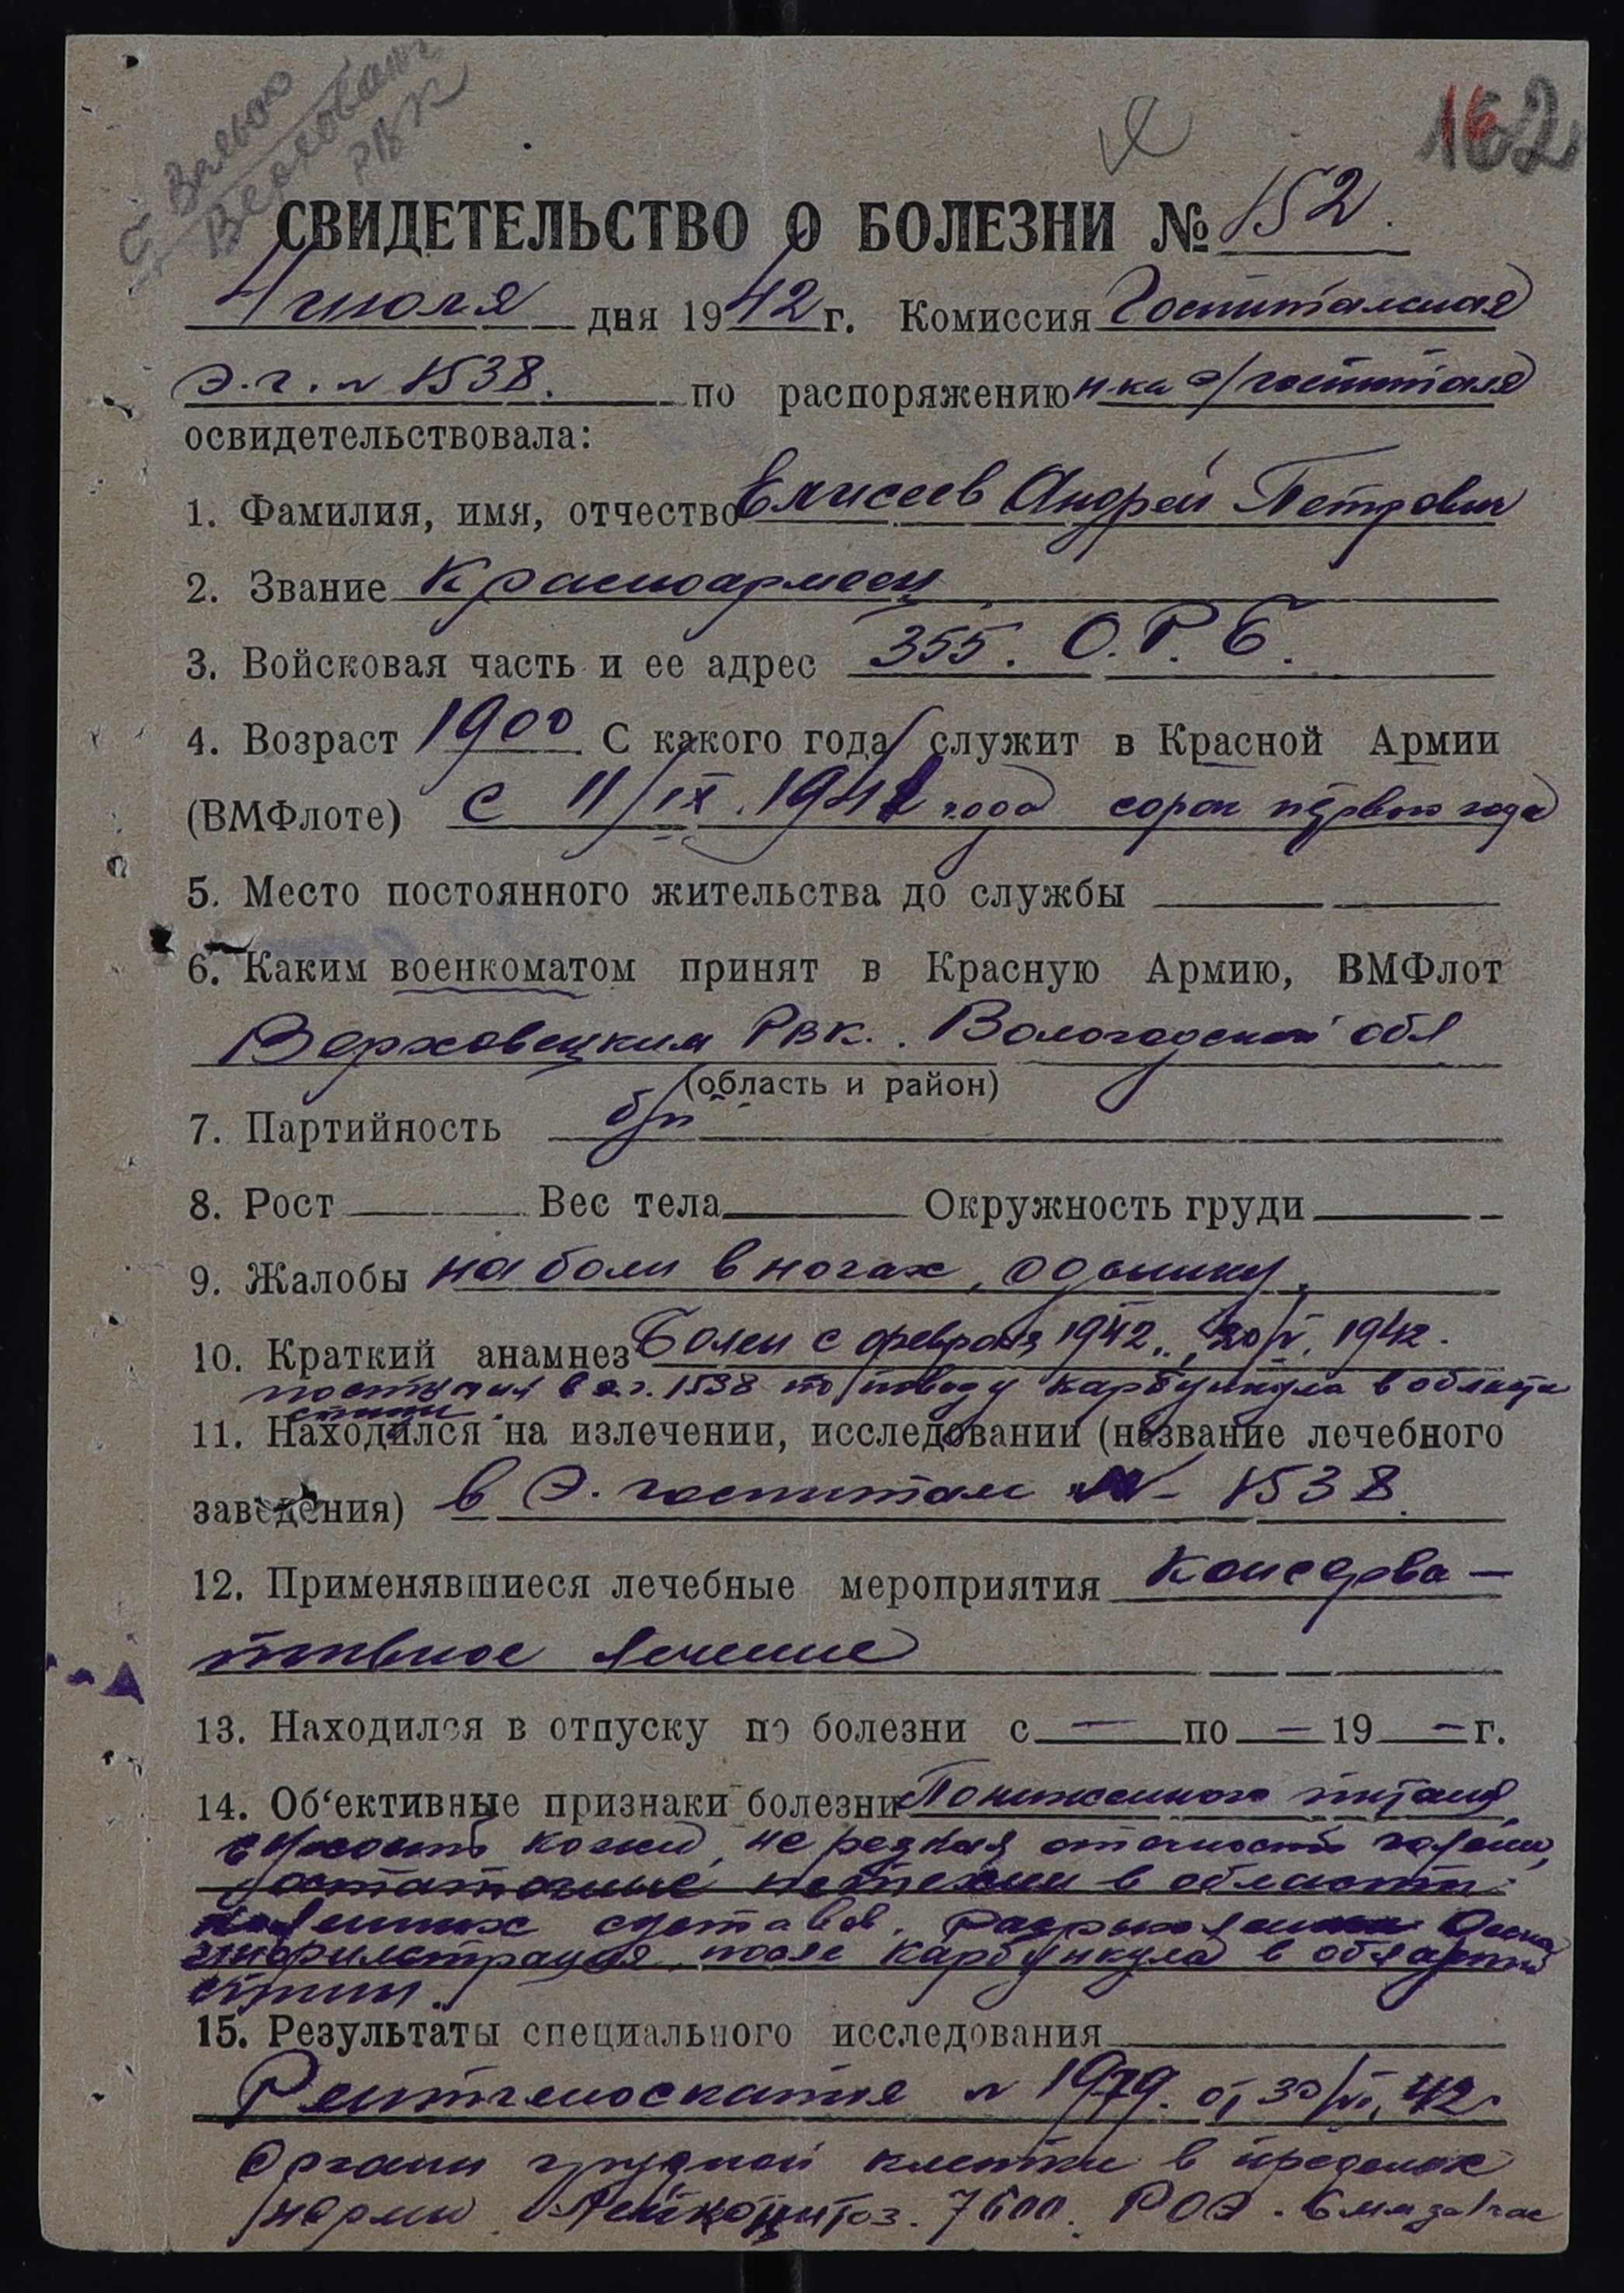 162
СВИДЕТЕЛЬСТВО О БОЛЕЗНИ № 152.
4 июля дня 1942 г. Комиссия Госпитальная
э.г. № 1538. по распоряжению н-ка э/госпиталя
освидетельствовала:
1. Фамилия, имя, отчество Елисеев Андрей Петрович
2. Звание Красноармеец
3. Войсковая часть и ее адрес 355. О.Р.Б.
4. Возраст 1900 С какого года служит в Красной Армии
(ВМФлоте) с 11/IX. 1941 года сорок первого года
5. Место постоянного жительства до службы
6. Каким военкоматом принят в Красную Армию, ВМФлот
Верховецким РВК. Вологодской обл
(область и район)
7. Партийность б/п
8. Рост Вес тела Окружность груди
9. Жалобы на боли в ногах, одышку.
10. Краткий анамнез Болен с февраля 1942., 1942.
поступил в э.г. 1538 по поводу карбункула в области
спины.
11. Находился на излечении, исследовании (название лечебного
заведения) в Э. госпитале № 1538.
12. Применявшиеся лечебные мероприятия Консерва-
тивное лечение
13. Находился в отпуску по болезни с — по — 19 — г.
14. Об‘ективные признаки болезни Пониженного питания,
сухость кожи, не резкая отечность голени,
остаточные в области
суставов.
инфильтрация после карбункула в области
спины.
15. Результаты специального исследования
Рентгеноскопия № 1979. от 30/VI. 42
Органы грудной клетки в пределах
нормы. Лейкоцитоз. 7600. РОЭ. 6 мм за 1 час